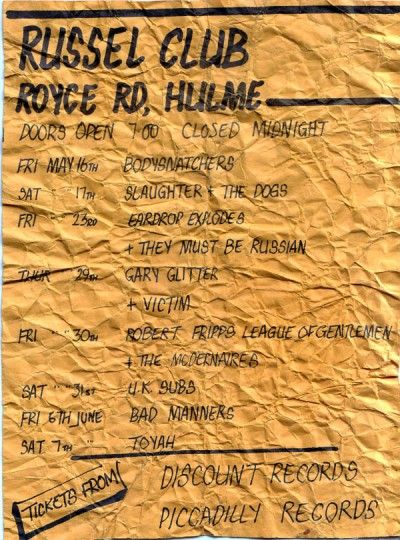 RUSSEL CLUB
ROYCE RD, HULME
DOORS OPEN 7.00 CLOSED MIDNIGHT
FRI MAY 16TH BODYSNATCHERS
SAT " 17TH SLAUGHTER + THE DOGS
FRI " 23RD EARDROP EXPLODES
+ THEY MUST BE RUSSIAN
THUR " 29TH GARY GLITTER
+ VICTIM
FRI " " 30TH ROBERT FRIPPS LEAGUE OF GENTLEMEN
+ THE MODERNAIRES
SAT " " 31ST U.K SUBS
FRI 6TH JUNE BAD MANNERS
SAT 7TH " TOYAH
TICKETS FROM
DISCOUNT RECORDS
PICCADILLY RECORDS